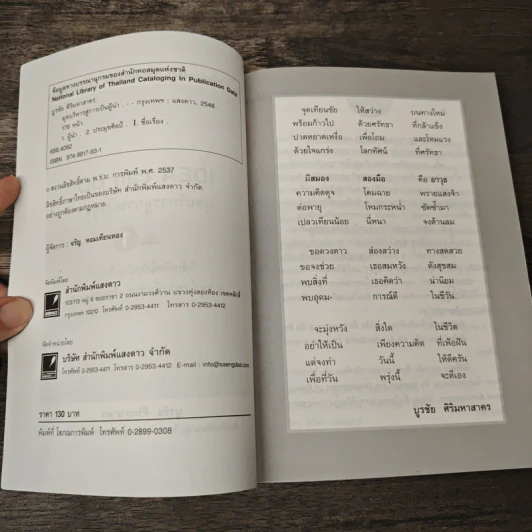 ข้อมูลทางบรรณานุกรมของสำนักหอสมุดแห่งชาติ
National Library of Thailand Cataloging in Publication Data
บูรชัย ศิริมหาสาคร.
ยุทธบริหารสู่การเป็นผู้นำ . - - กรุงเทพฯ : แสงดาว, 2548
176 หน้า
1. ผู้นำ . 2. ประมุขศิลป์ . I. ชื่อเรื่อง .
658.4092
ISBN 974-9817-93-1
© สงวนลิขสิทธิ์ตาม พ.ร.บ. การพิมพ์ พ.ศ. 2537
ลิขสิทธิ์ภาษาไทยเป็นของบริษัท สำนักพิมพ์แสงดาว จำกัด
อย่างถูกต้องตามกฎหมาย
ผู้จัดการ : จรัญ หอมเทียนทอง
จัดพิมพ์โดย
สำนักพิมพ์แสงดาว
กรุงเทพฯ 10210 โทรศัพท์ 0-2953-4411 โทรสาร 0-2953-4412
จัดจำหน่ายโดย
บริษัท สำนักพิมพ์แสงดาว จำกัด
โทรศัพท์ 0-2953-4411 โทรสาร 0-2953-4412 E-mail : info@saengdao.com
ราคา 130 บาท
พิมพ์ที่ โสภณการพิมพ์ โทรศัพท์ 0-2899-0308
จุดเทียนชัย ให้สว่าง บนทางใหม่
พร้อมก้าวไป ด้วยศรัทธา ที่กล้าแข็ง
ปาดหยาดเหงื่อ เพื่อโถม และโหมแรง
ด้วยใจแกร่ง โลกทัศน์ ที่ศรัทธา
มีสมอง สองมือ คือ อาวุธ
ความคิดดุจ โคมฉาย พรายแสงจ้า
ต่อพายุ โหมกระหน่ำ ซัดซ้ำมา
เปลวเทียนน้อย นี่หนา จงต้านลม
ขอดวงดาว ส่องสว่าง ทางสดสวย
ขอจงช่วย เธอสมหวัง ดังสุขสม
พบสิ่งที่ เธอคิดว่า น่านิยม
พบอุดม- การณ์ดี ในชีวัน
จะมุ่งหวัง สิ่งใด ในชีวิต
อย่าให้เป็น เพียงความคิด ที่เพ้อฝัน
แต่จงทำ วันนี้ ให้ดีครัน
เพื่อที่วัน พรุ่งนี้ จะดีเอง
บูรชัย ศิริมหาสาคร